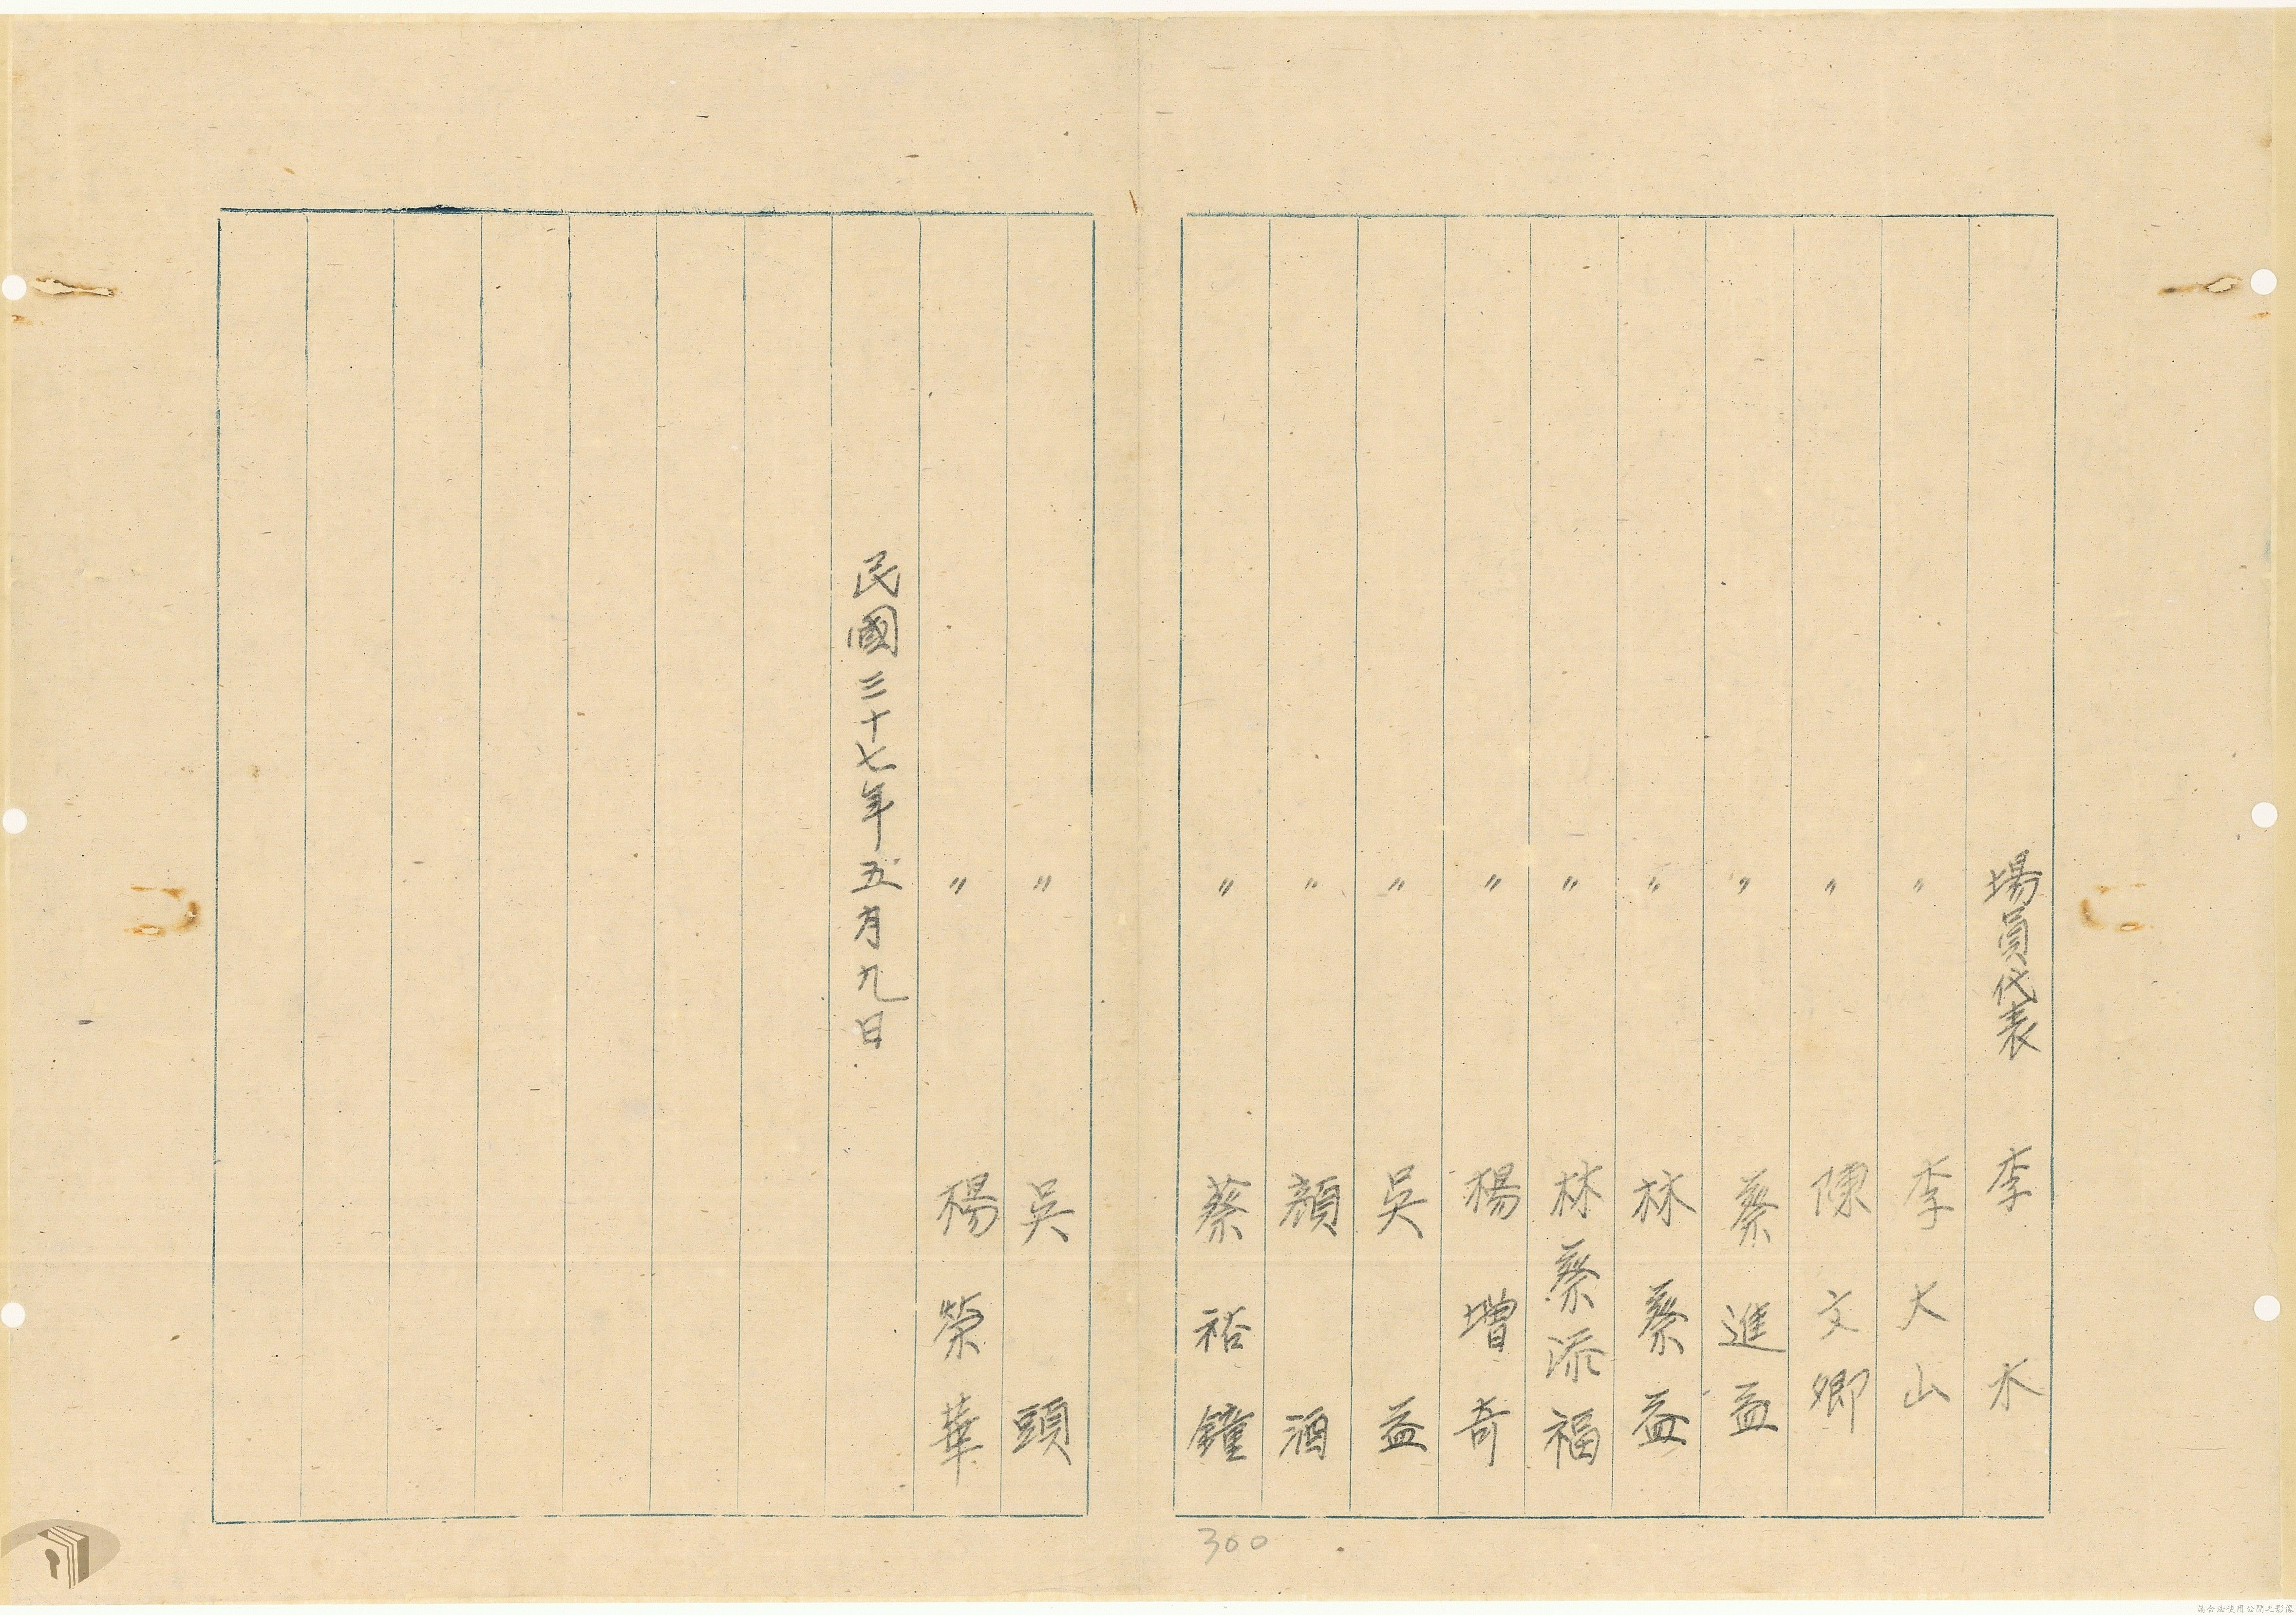 場員代表 李 木
〃 李大山
〃 陳文卿
〃 蔡進益
〃 林蔡益
〃 林蔡添福
〃 楊增奇
〃 吳 益
〃 顏 酒
〃 蔡裕鐘
〃 吳 頭
〃 楊榮華
民國三十七年五月九日
300
請合法使用公開之影像